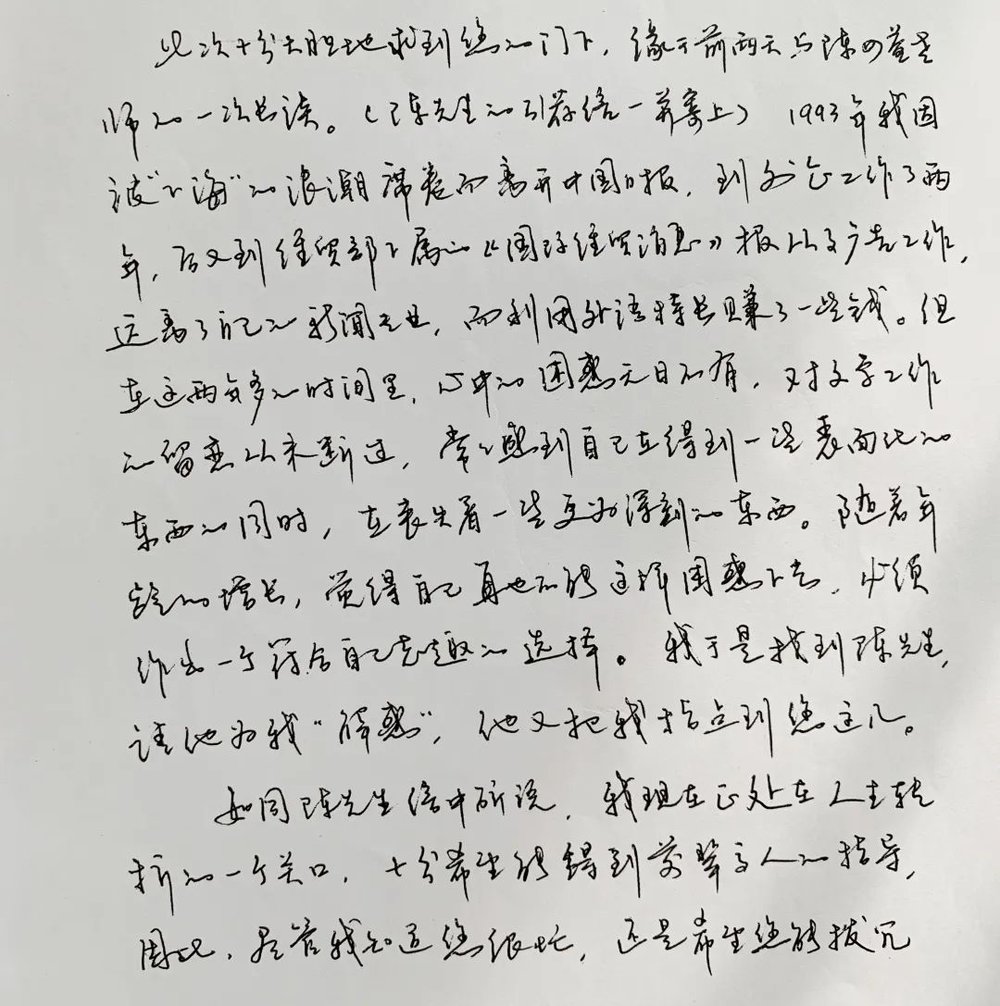 此次十分大胆地求到您的门下，缘于前两天与陈四益老
师的一次长谈。（陈先生的引荐信一并寄上）1993年我因
被"下海"的浪潮席卷而离开中国日报，到外企工作了两
年，后又到经贸部下属的《国际经贸消息》报从事广告工作，
远离了自己的新闻专业，而利用外语特长赚了一些钱。但
在这两年多的时间里，心中的困惑无日不有，对文字工作
的留恋从未断过，常常感到自己在得到一些表面化的
东西的同时，在丧失着一些更为深刻的东西。随着年
龄的增长，觉得自己再也不能这样困惑下去，必须
作出一个符合自己志趣的选择。我于是找到陈先生，
请他为我"解惑"，他又把我指点到您这儿。
如同陈先生信中所说，我现在正处在人生转
折的一个关口，十分希望能得到前辈高人的指导，
因此，尽管我知道您很忙，还是希望您能拨冗